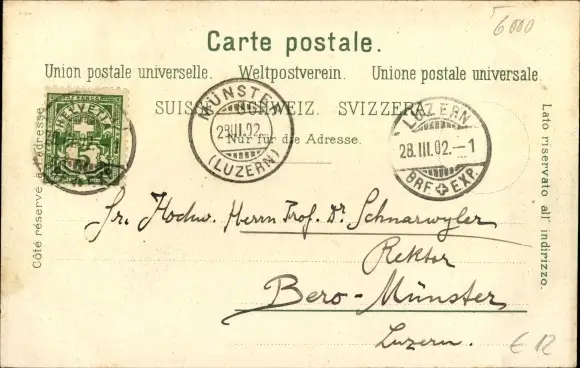 6000
Carte postale.
Union postale universelle. Weltpostverein. Unione postale universale.
SUISSE. SCHWEIZ. SVIZZERA.
Nur für die Adresse.
HELVETIA
MÜNSTER
29.III.02.
(LUZERN)
LUZERN
28.III.02.–1
BRF. EXP.
Côté réservé à l'adresse.
Lato riservato all' indirizzo.
Sr. Hochw. Herrn Prof. Dr. Schnarwyler
Rektor
Bero-Münster
Luzern.
€ 12